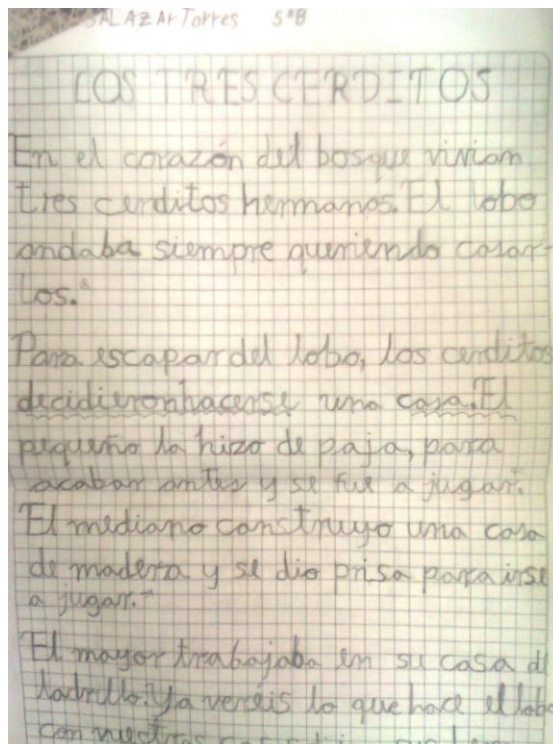 SALAZAR Torres 5ºB
LOS TRES CERDITOS
En el corazón del bosque viviam
tres cerditos hermanos. El lobo
andaba siempre queriendo cazar-
los.
Para escapar del lobo, los cerditos
decidieron hacerse una casa. El
pequeño la hizo de paja, para
acabar antes y se fue a jugar.
El mediano construyo una casa
de madera y se dio prisa para irse
a jugar.
El mayor trabajaba en su casa de
ladrillo. Ya veréis lo que hace el lobo
con nuestras